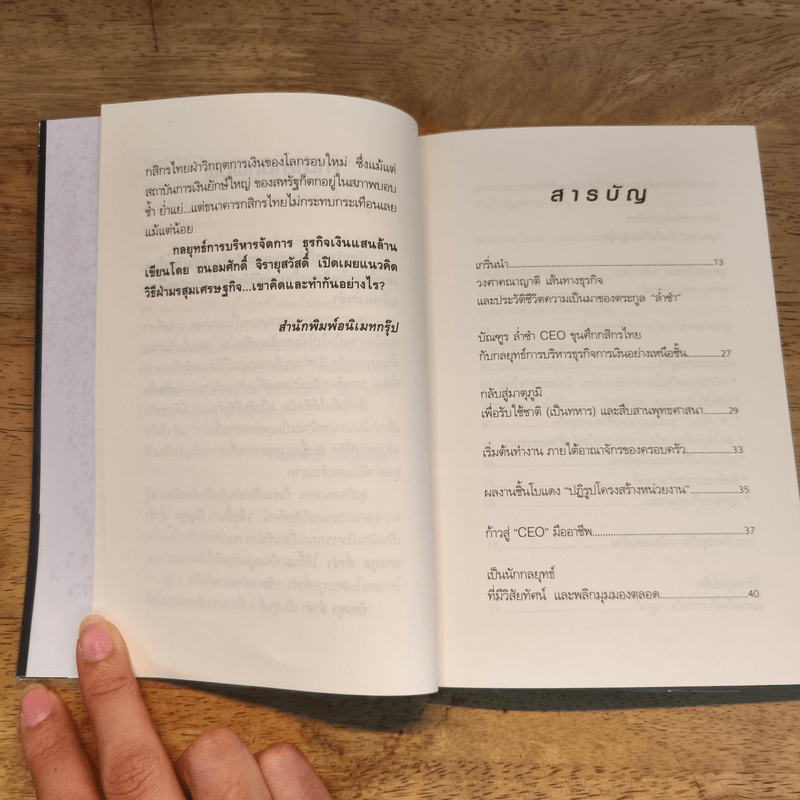 กสิกรไทยฝ่าวิกฤตการเงินของโลกรอบใหม่ ซึ่งแม้แต่
สถาบันการเงินยักษ์ใหญ่ ของสหรัฐก็ตกอยู่ในสภาพบอบ
ช้ำ ย่ำแย่...แต่ธนาคารกสิกรไทยไม่กระทบกระเทือนเลย
แม้แต่น้อย
กลยุทธ์การบริหารจัดการ ธุรกิจเงินแสนล้าน
เขียนโดย ถนอมศักดิ์ จิรายุสวัสดิ์ เปิดเผยแนวคิด
วิธีฝ่ามรสุมเศรษฐกิจ...เขาคิดและทำกันอย่างไร?
สำนักพิมพ์อนิเมทกรุ๊ป
สารบัญ
เกริ่นนำ.......................................................13
วงศาคณาญาติ เส้นทางธุรกิจ
และประวัติชีวิตความเป็นมาของตระกูล "ล่ำซำ"
บัณฑูร ล่ำซำ CEO ขุนศึกกสิกรไทย
กับกลยุทธ์การบริหารธุรกิจการเงินอย่างเหนือชั้น............27
กลับสู่มาตุภูมิ
เพื่อรับใช้ชาติ (เป็นทหาร) และสืบสานพุทธศาสนา.........29
เริ่มต้นทำงาน ภายใต้อาณาจักรของครอบครัว...............33
ผลงานชิ้นโบแดง "ปฏิรูปโครงสร้างหน่วยงาน"...............35
ก้าวสู่ "CEO" มืออาชีพ........................................37
เป็นนักกลยุทธ์
ที่มีวิสัยทัศน์ และพลิกมุมมองตลอด..........................40